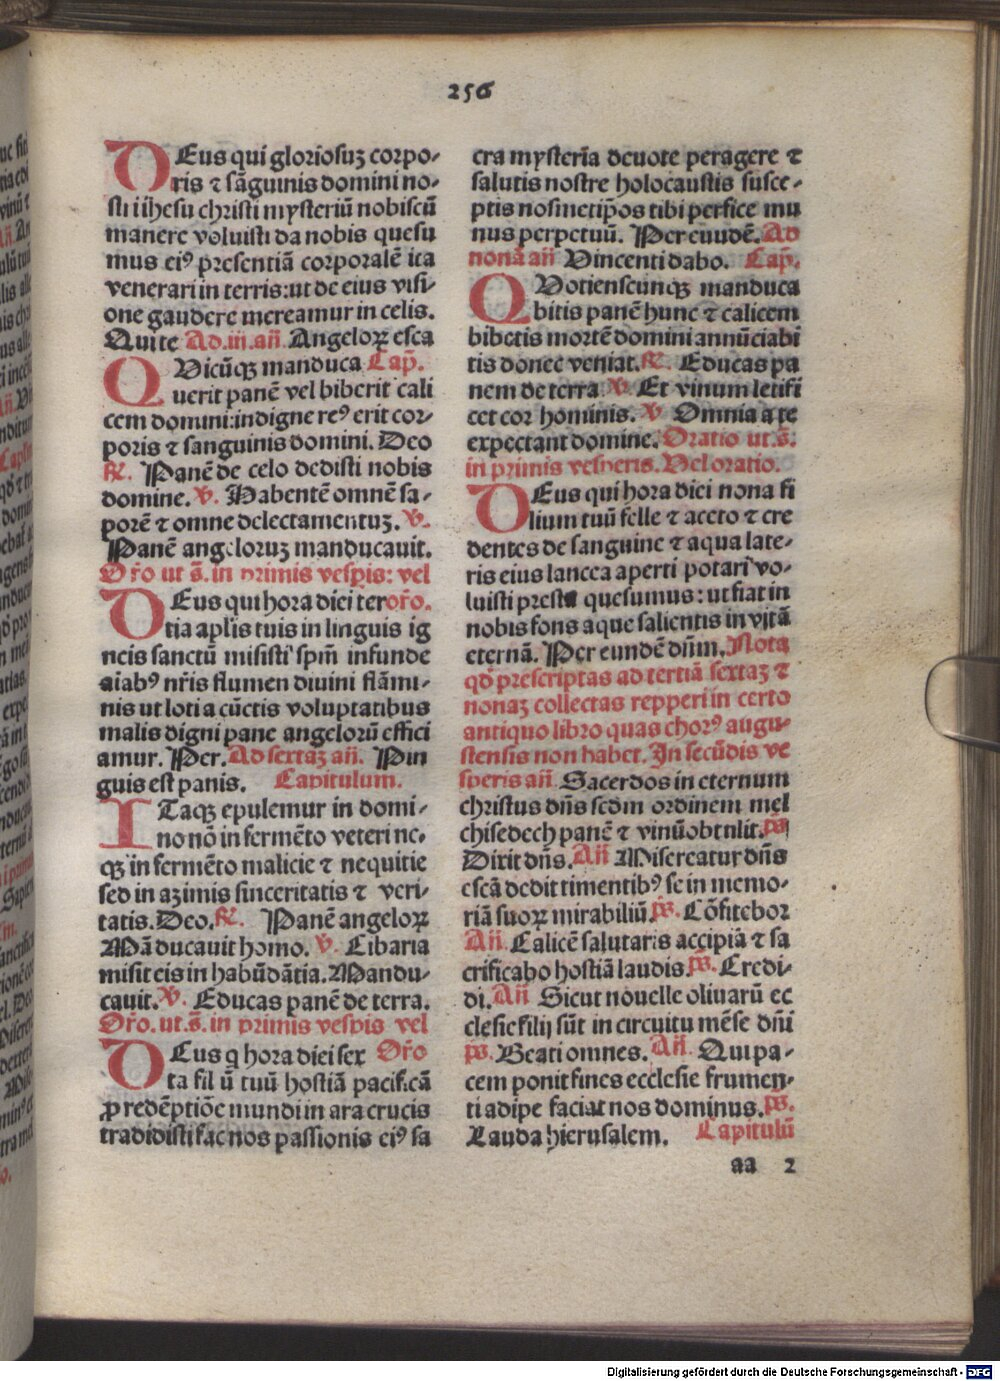 256
DEus qui gloriosuz corpo-
ris ⁊ sāguinis domini no-
stri ihesu christi mysteriū nobiscū
manere voluisti da nobis quesu
mus eiꝰ presentiā corporalē ita
venerari in terris: ut de eius visi-
one gaudere mereamur in celis.
Qui te Ad .iii. añ. Angeloꝝ esca
QUicūqꝫ manduca Cap̄.
uerit panē vel biberit cali
cem domini: indigne reꝰ erit cor-
poris ⁊ sanguinis domini. Deo
℟. Panē de celo dedisti nobis
domine. ℣. Habentē omnē sa-
porē ⁊ omne delectamentuz. ℣.
Panē angeloruz manducauit.
Or̄o ut s̄. in primis vesp̄is: vel
DEus qui hora diei ter or̄o.
tia apl̄is tuis in linguis ig
neis sanctū misisti spm̄ infunde
aīabꝰ nr̄is flumen diuini flāmi-
nis ut loti a cūctis voluptatibus
malis digni pane angelorū effici
amur. Per. Ad sextaz añ. Pin
guis est panis. Capitulum.
ITaqꝫ epulemur in domi-
no nō in fermēto veteri ne-
qꝫ in fermēto malicie ⁊ nequitie
sed in azimis sinceritatis ⁊ veri-
tatis. Deo. ℟. Panē angeloꝝ
Māducauit homo. ℣. Cibaria
misit eis in habūdātia. Mandu-
cauit. ℣. Educas panē de terra.
Or̄o. ut s̄. in primis vesp̄is vel
DEus q hora diei sex Or̄o
ta filiū tuū hostiā pacificā
ꝓ redēptiōe mundi in ara crucis
tradidisti fac nos passionis eiꝰ sa
cra mysteria deuote peragere ⁊
salutis nostre holocaustis susce-
ptis nosmetip̄os tibi perfice mu
nus perpetuū. Per euudē. Ad
nonā añ Vincenti dabo. Cap̄.
QUotienscunqꝫ manduca
bitis panē hunc ⁊ calicem
bibetis mortē domini annūciabi
tis donec veniat. ℟. Educas pa
nem de terra ℣. Et vinum letifi
cet cor hominis. ℣. Omnia a te
expectant domine. Oratio ut s̄.
in primis vesperis. Vel oratio.
DEus qui hora diei nona fi
lium tuū felle ⁊ aceto ⁊ cre
dentes de sanguine ⁊ aqua late-
ris eius lancea aperti potari vo-
luisti presta quesumus: ut fiat in
nobis fons aque salientis in vitā
eternā. Per eundē dn̄m. Nota
qd̓ prescriptas ad tertiā sextaz ⁊
nonaz collectas repperi in certo
antiquo libro quas chorꝰ augu-
stensis non habet. In secūdis ve
speris añ Sacerdos in eternum
christus dn̄s scdm ordinem mel
chisedech panē ⁊ vinū obtulit. ps̄
Dixit dn̄s. Añ Misereatur dn̄s
escā dedit timentibꝰ se in memo-
riā suoꝝ mirabiliū. ps̄. Cōfitebor
Añ Calicē salutaris accipiā ⁊ sa
crificabo hostiā laudis. ps̄. Credi-
di. Añ Sicut nouelle oliuarū ec
clesie filij sūt in circuitu mēse dn̄i
ps̄. Beati omnes. Añ. Qui pa-
cem ponit fines ecclesie frumen-
ti adipe faciat nos dominus. ps̄.
Lauda hierusalem. Capitulū
aa 2
Digitalisierung gefördert durch die Deutsche Forschungsgemeinschaft - DFG